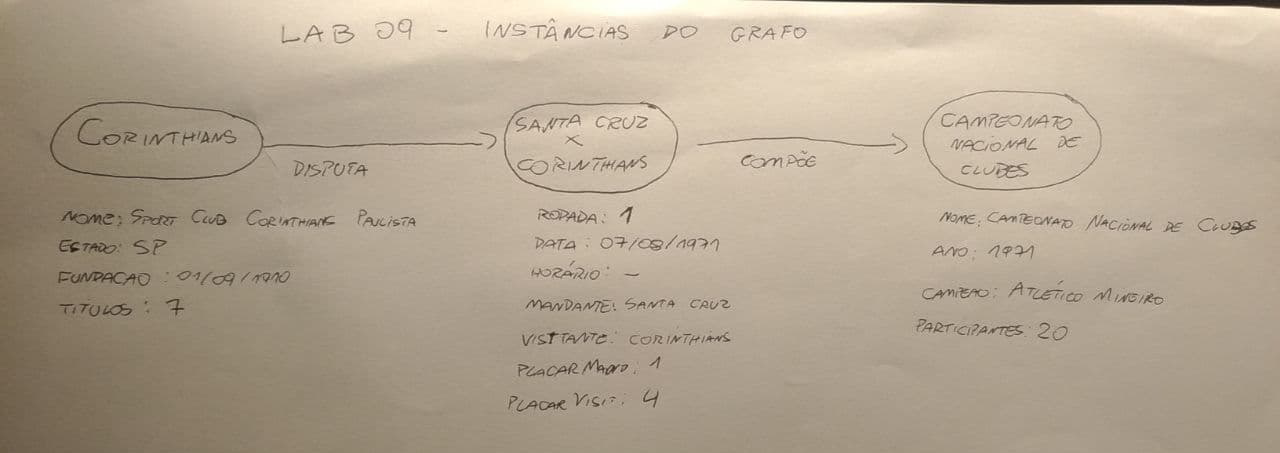 LAB 09 - INSTÂNCIAS DO GRAFO
CORINTHIANS
DISPUTA
SANTA CRUZ
X
CORINTHIANS
COMPÕE
CAMPEONATO
NACIONAL DE
CLUBES
NOME: SPORT CLUB CORINTHIANS PAULISTA
ESTADO: SP
FUNDACAO: 01/09/1910
TITULOS: 7
RODADA: 1
DATA: 07/08/1971
HORÁRIO: -
MANDANTE: SANTA CRUZ
VISITANTE: CORINTHIANS
PLACAR MAND.: 1
PLACAR VISIT.: 4
NOME: CAMPEONATO NACIONAL DE CLUBES
ANO: 1971
CAMPEAO: ATLÉTICO MINEIRO
PARTICIPANTES: 20